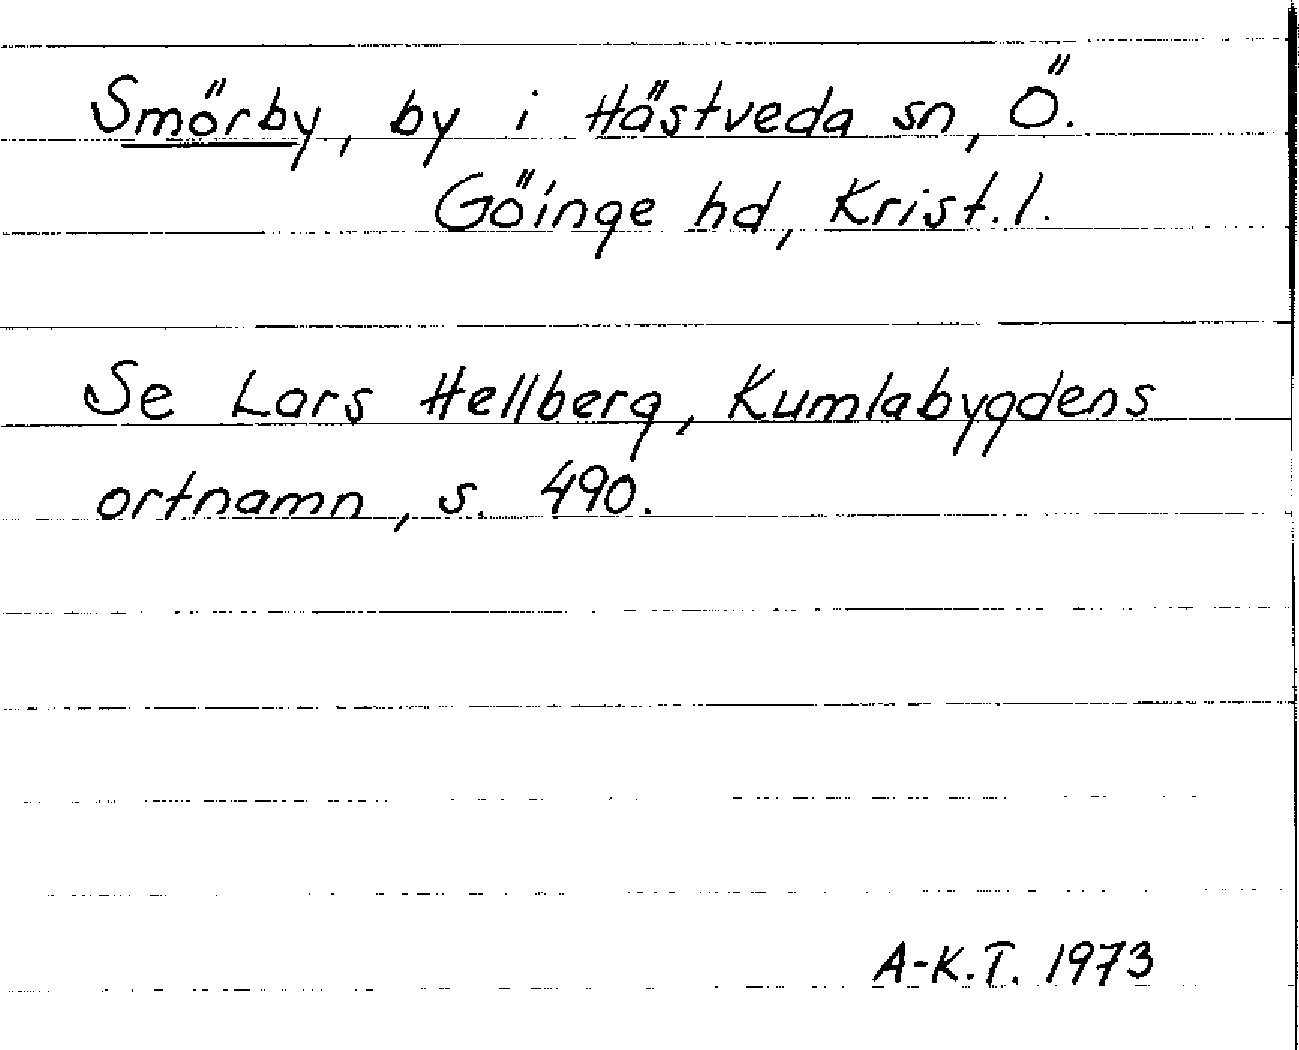 Smörby, by i Hästveda sn, Ö.
Göinge hd, Krist. l.
Se Lars Hellberg, Kumlabygdens
ortnamn, s. 490.
A-K.T. 1973